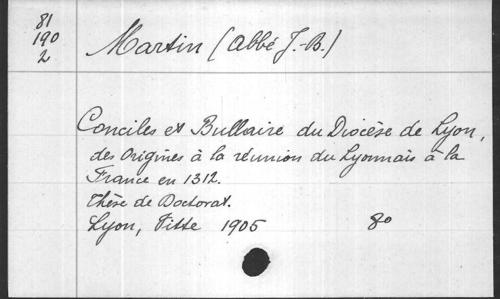 81
190
2
Martin (Abbé J.-B.)
Conciles et Bullaire du Diocèse de Lyon,
des Origines à la réunion du Lyonnais à la
France en 1312.
Thèse de Doctorat.
Lyon, Vitte 1905 8o